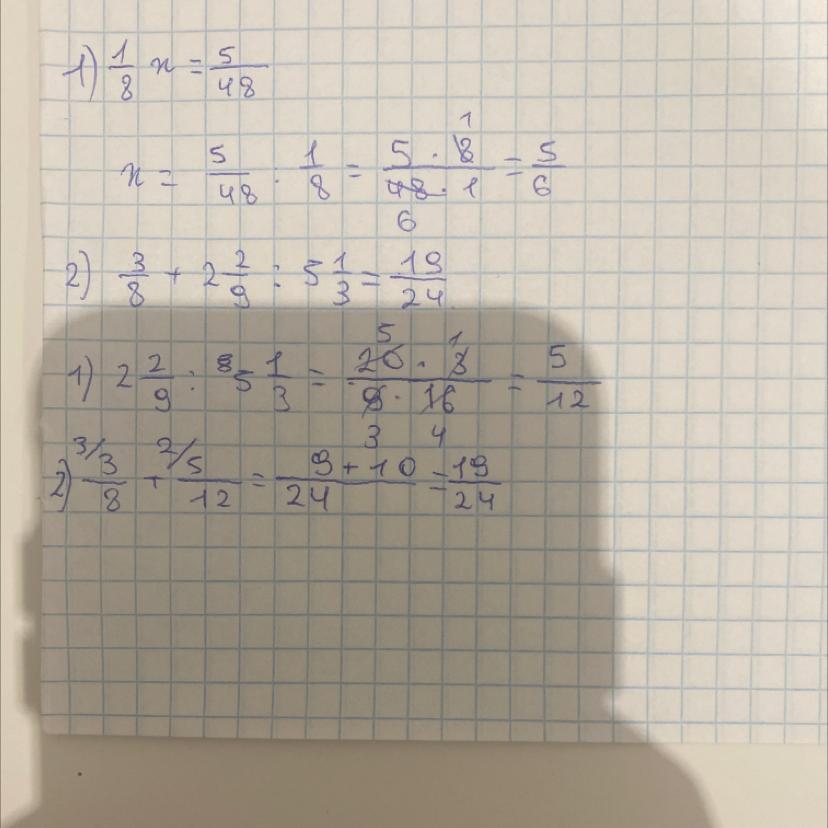 1) 1/8 x = 5/48
x = 5/48 : 1/8 = 5 · 8 1 / 48 · 1 6 = 5/6
2) 3/8 + 2 2/9 : 5 1/3 = 19/24
1) 2 2/9 : 5 1/3 = 5 20 · 3 1 / 9 · 16 3 4 = 5/12
2) 3/ 3/8 + 2/ 5/12 = 9 + 10 / 24 = 19/24